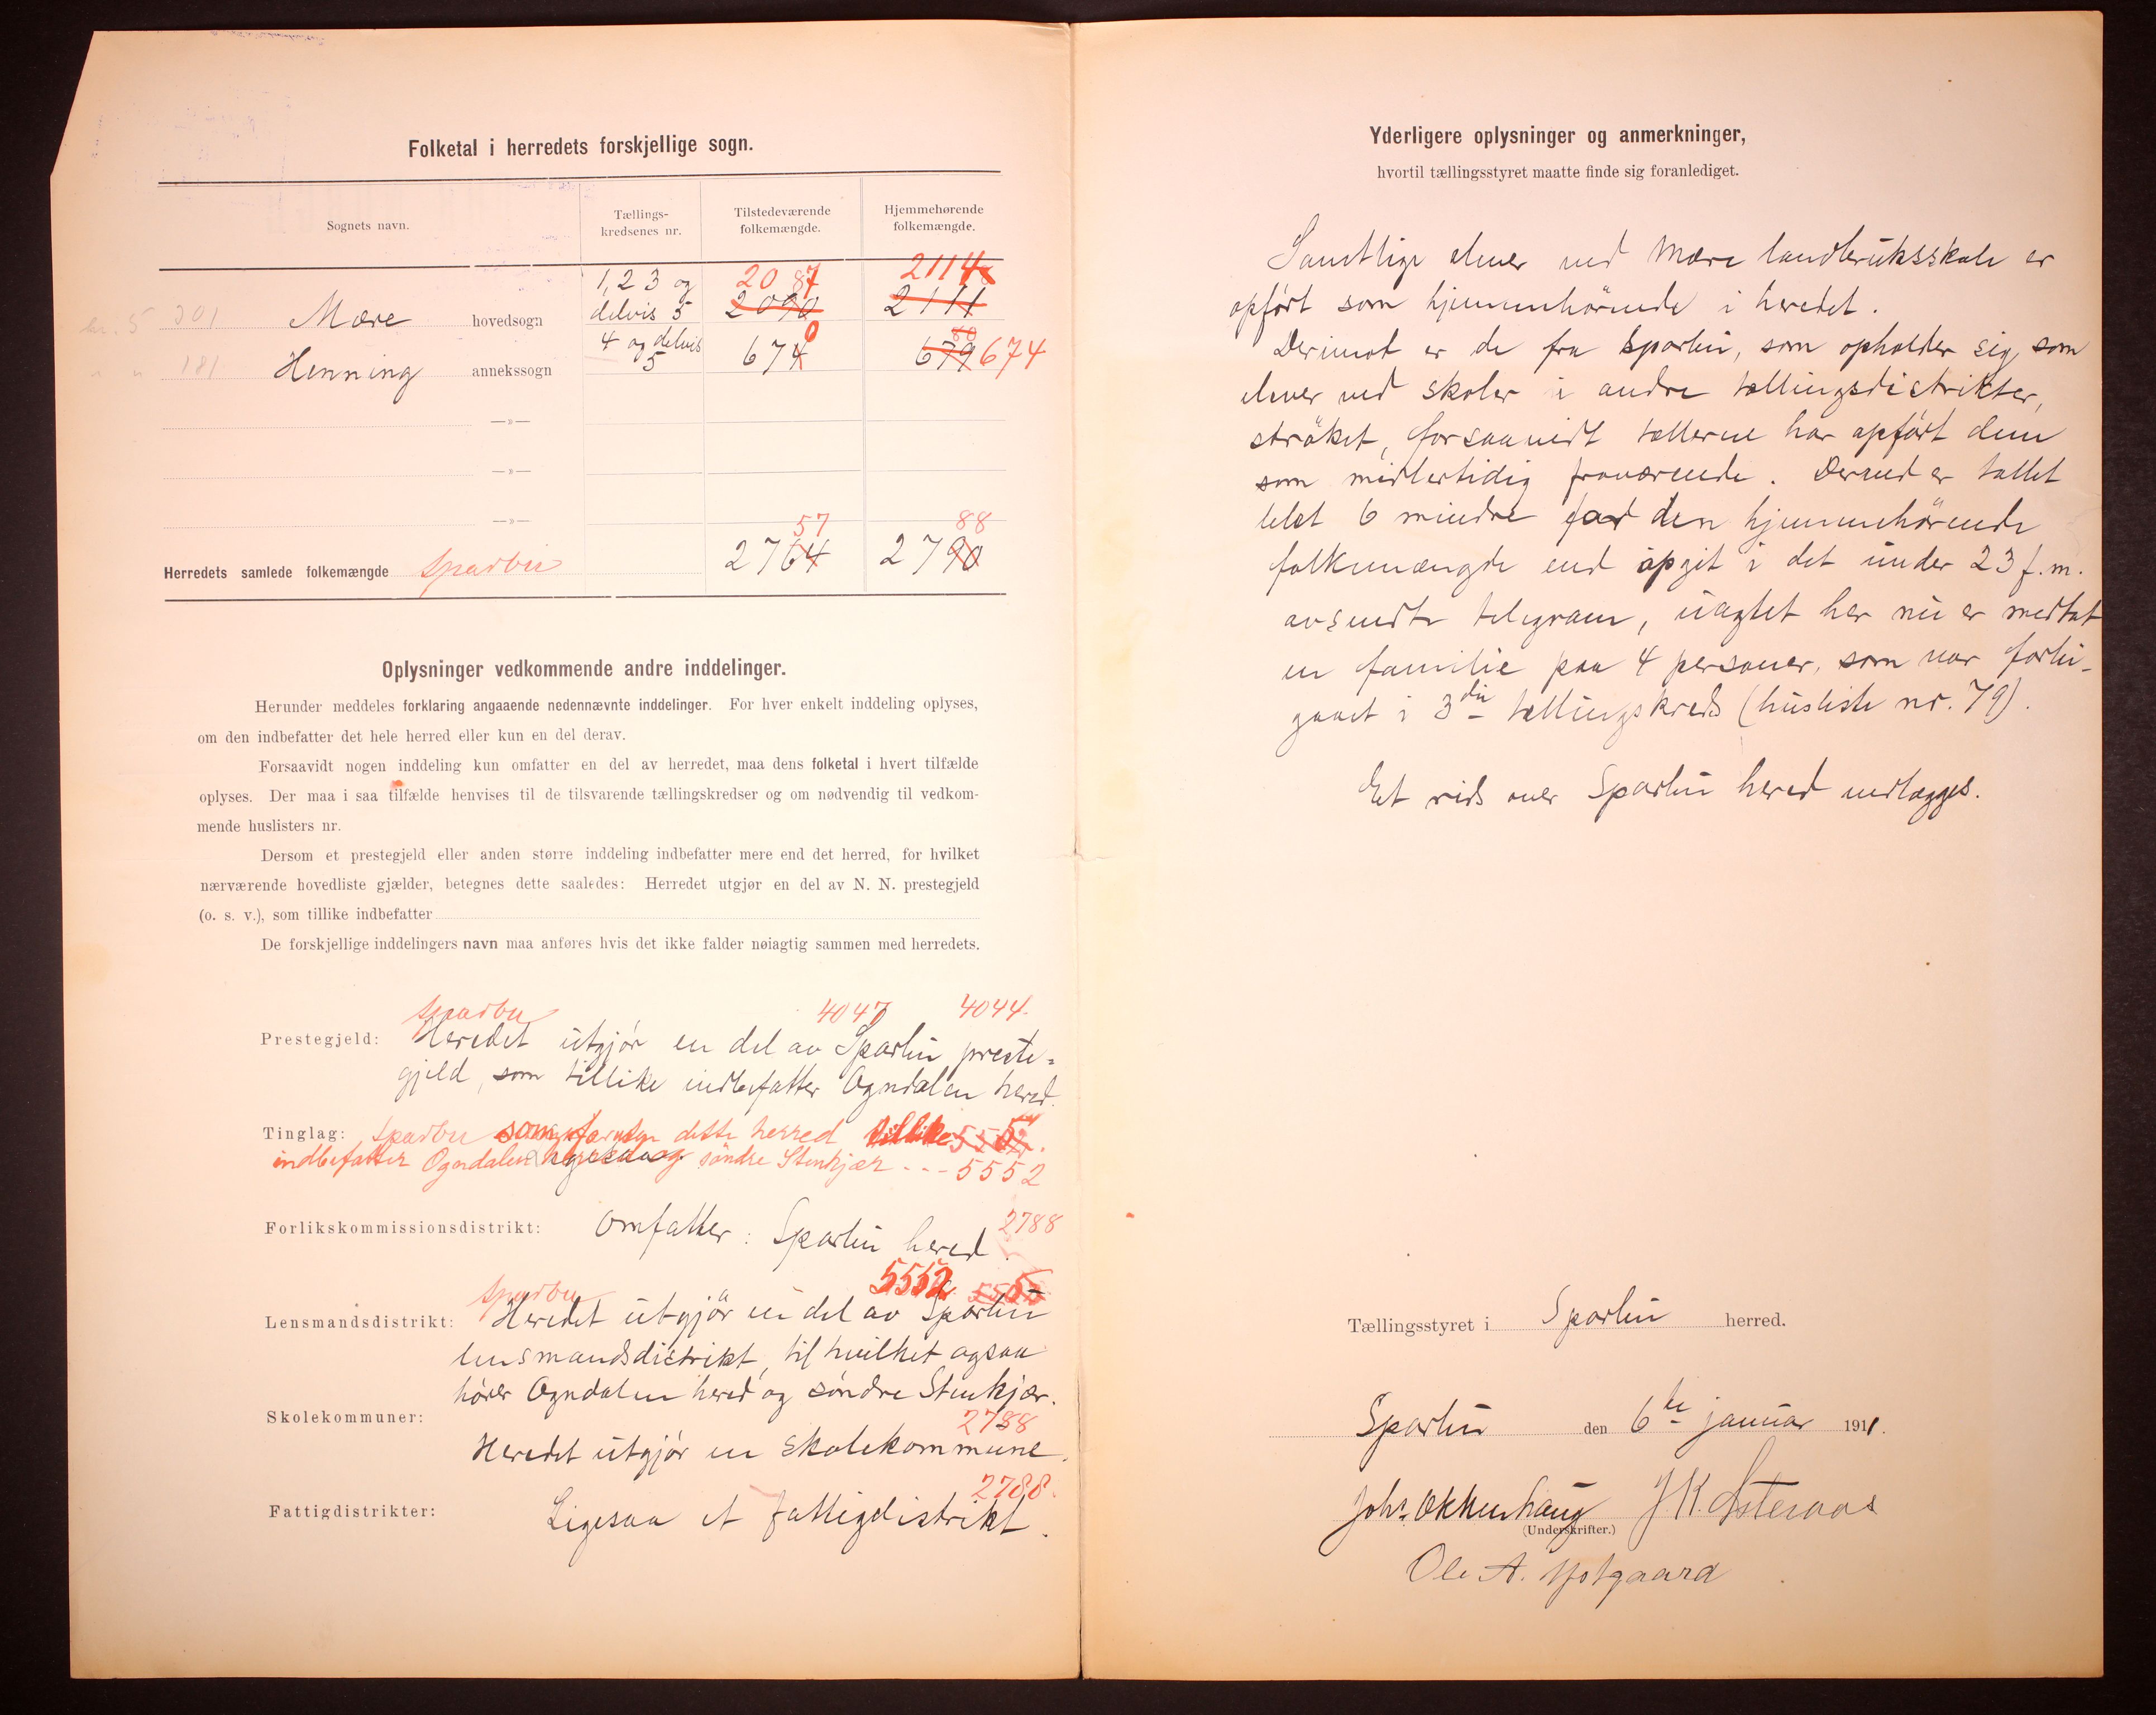 Folketal i herredets forskjellige sogn.
Sognets navn.
Tællings-
kredsenes nr.
Tilstedeværende
folkemængde.
Hjemmehørende
folkemængde.
1, 2 3 og
delvis 5
20 87
2114
301
Mære hovedsogn
2090
2111
4 og delvis
5
181
Henning annekssogn
674
0
679
80
674
—»—
—»—
—»—
57
88
Herredets samlede folkemængde Sparbu 2764 2790
Oplysninger vedkommende andre inddelinger.
Herunder meddeles forklaring angaaende nedennævnte inddelinger. For hver enkelt inddeling oplyses,
om den indbefatter det hele herred eller kun en del derav.
Forsaavidt nogen inddeling kun omfatter en del av herredet, maa dens folketal i hvert tilfælde
oplyses. Der maa i saa tilfælde henvises til de tilsvarende tællingskredser og om nødvendig til vedkom-
mende huslisters nr.
Dersom et prestegjeld eller anden større inddeling indbefatter mere end det herred, for hvilket
nærværende hovedliste gjælder, betegnes dette saaledes: Herredet utgjør en del av N. N. prestegjeld
(o. s. v.), som tillike indbefatter
De forskjellige inddelingers navn maa anføres hvis det ikke falder nøiagtig sammen med herredets.
Sparbu 4047 4044
Prestegjeld: Heredet utgjør en del av Sparbu preste-
gjeld, som tillike indbefatter Ogndalen hered.
Tinglag: Sparbu som dette herred tillike
indbefatter Ogndalen og søndre Stenkjær - - - 5552
Forlikskommissionsdistrikt: Omfatter: Sparbu hered. 2788
Sparbu 5552
Lensmandsdistrikt: Heredet utgjør en del av Sparbu
lensmandsdistrikt, til hvilket ogsaa
hører Ogndalen hered og søndre Stenkjær.
Skolekommuner: 2788
Heredet utgjør en skolekommune.
2788.
Fattigdistrikter: Ligesaa et fattigdistrikt.
Yderligere oplysninger og anmerkninger,
hvortil tællingsstyret maatte finde sig foranlediget.
Samtlige elever ved Mære landbruksskole er
opført som hjemmehörende i heredet.
Derimot er de fra Sparbu, som opholder sig som
elever ved skoler i andre tællingsdistrikter,
strøket, forsaavidt tællerne har opført dem
som midlertidig fraværende. Derved er tallet
blet 6 mindre for den hjemmehörende
folkemængde end opgit i det under 23 f. m.
avsendte telegram, uagtet her nu er medtat
en familie paa 4 personer, som var forbi-
gaaet i 3die tællingskreds (husliste nr. 79).
Et rids over Sparbu hered vedlægges.
Tællingsstyret i Sparbu herred.
Sparbu den 6te januar 1911.
Johs. Okkenhaug J K. Østeraas
(Underskrifter.)
Ole A.